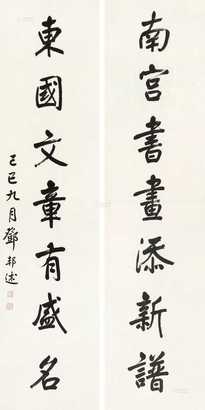 南宮書畫添新譜
東國文章有盛名
己巳九月鄧邦述